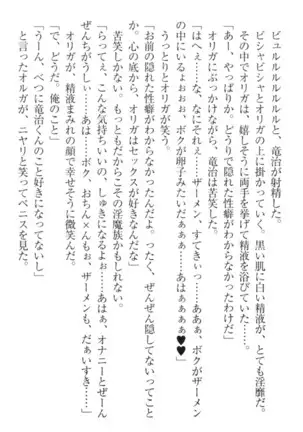 ビュルルルルルルルッと、竜治が射精した。
ビシャビシャとオリガの上に掛かっていく。黒い肌に白い精液が、とても淫靡だ。
その中でオリガは、嬉しそうに両手を挙げて精液を浴びていた……。
「あー、やっぱりか。どうりで隠れた性癖がわからなかったわけだ」
オリガにぶっかけながら、竜治は苦笑した。
「はへぇ……な、なにそれぇ……ザーメン、すてきぃっ……ああぁ、ボクがザーメン
にされてるよぉぉぉ、ボクが卵子みたいだぁぁぁ……あはぁぁぁぁ♥♥」
うっとりとオリガが笑う。
「お前の隠れた性癖がわからなかったんだよ。ったく、ぜんぜん隠してないってこと
か。心の底から、オリガはセックスが好きなんだな」
苦笑しかない。もっともだからこその淫魔族かもしれない。
「らってぇ、こんな気持ちいいの、しゅきになるぉぉ……あはぁ、オナニーとぜーん
ぜんちがうしぃ……あは……ボク、おちん×んもぉ、ザーメンも、だぁいすき……」
オリガが、精液まみれの顔で幸せそうに微笑んだ。
「で、どうだ。俺のこと」
「うーん、べつに竜治くんのこと好きになってないし」
と言ったオルガが、ニヤリと笑ってペニスを見た。